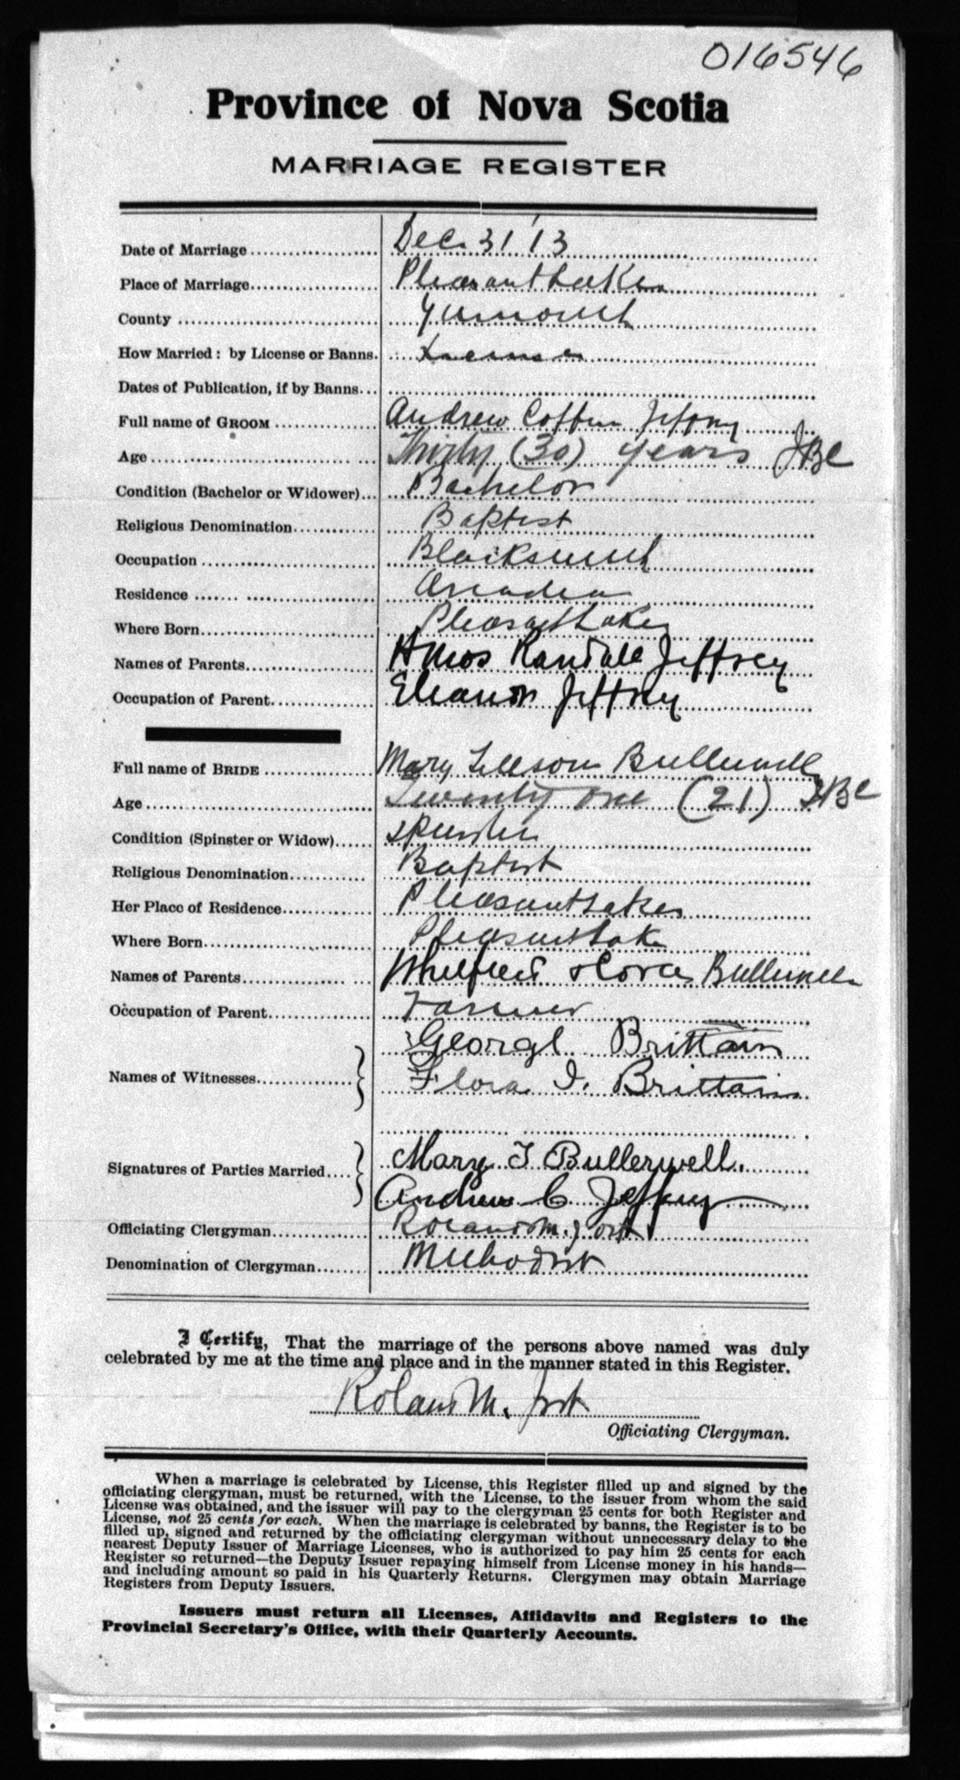 016546
Province of Nova Scotia
MARRIAGE REGISTER
Date of Marriage Dec. 31 '13
Place of Marriage Pleasant Lake
County Yarmouth
How Married: by License or Banns. License
Dates of Publication, if by Banns
Full name of GROOM Andrew Coffin Jeffrey
Age Thirty (30) years JBC
Condition (Bachelor or Widower) Bachelor
Religious Denomination Baptist
Occupation Blacksmith
Residence Arcadia
Where Born Pleasant Lake
Names of Parents Amos Randall Jeffrey
Occupation of Parent Eleanor Jeffrey
Full name of BRIDE Mary Bullerwell
Age Twenty one (21) JBC
Condition (Spinster or Widow) Spinster
Religious Denomination Baptist
Her Place of Residence Pleasant Lake
Where Born Pleasant Lake
Names of Parents Bullerwell
Occupation of Parent Farmer
George Brittain
Names of Witnesses Flora I. Brittain
Mary T Bullerwell.
Signatures of Parties Married Andrew C Jeffrey
Officiating Clergyman Roland M. Jost
Denomination of Clergyman Methodist
I Certify, That the marriage of the persons above named was duly
celebrated by me at the time and place and in the manner stated in this Register.
Roland M. Jost
Officiating Clergyman.
When a marriage is celebrated by License, this Register filled up and signed by the
officiating clergyman, must be returned, with the License, to the issuer from whom the said
License was obtained, and the issuer will pay to the clergyman 25 cents for both Register and
License, not 25 cents for each. When the marriage is celebrated by banns, the Register is to be
filled up, signed and returned by the officiating clergyman without unnecessary delay to the
nearest Deputy Issuer of Marriage Licenses, who is authorized to pay him 25 cents for each
Register so returned—the Deputy Issuer repaying himself from License money in his hands—
and including amount so paid in his Quarterly Returns. Clergymen may obtain Marriage
Registers from Deputy Issuers.
Issuers must return all Licenses, Affidavits and Registers to the
Provincial Secretary's Office, with their Quarterly Accounts.